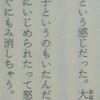 という感じだった。大
子というのもいたんだ
にいじめられたって堅
ぐにもみ消しちゃう。